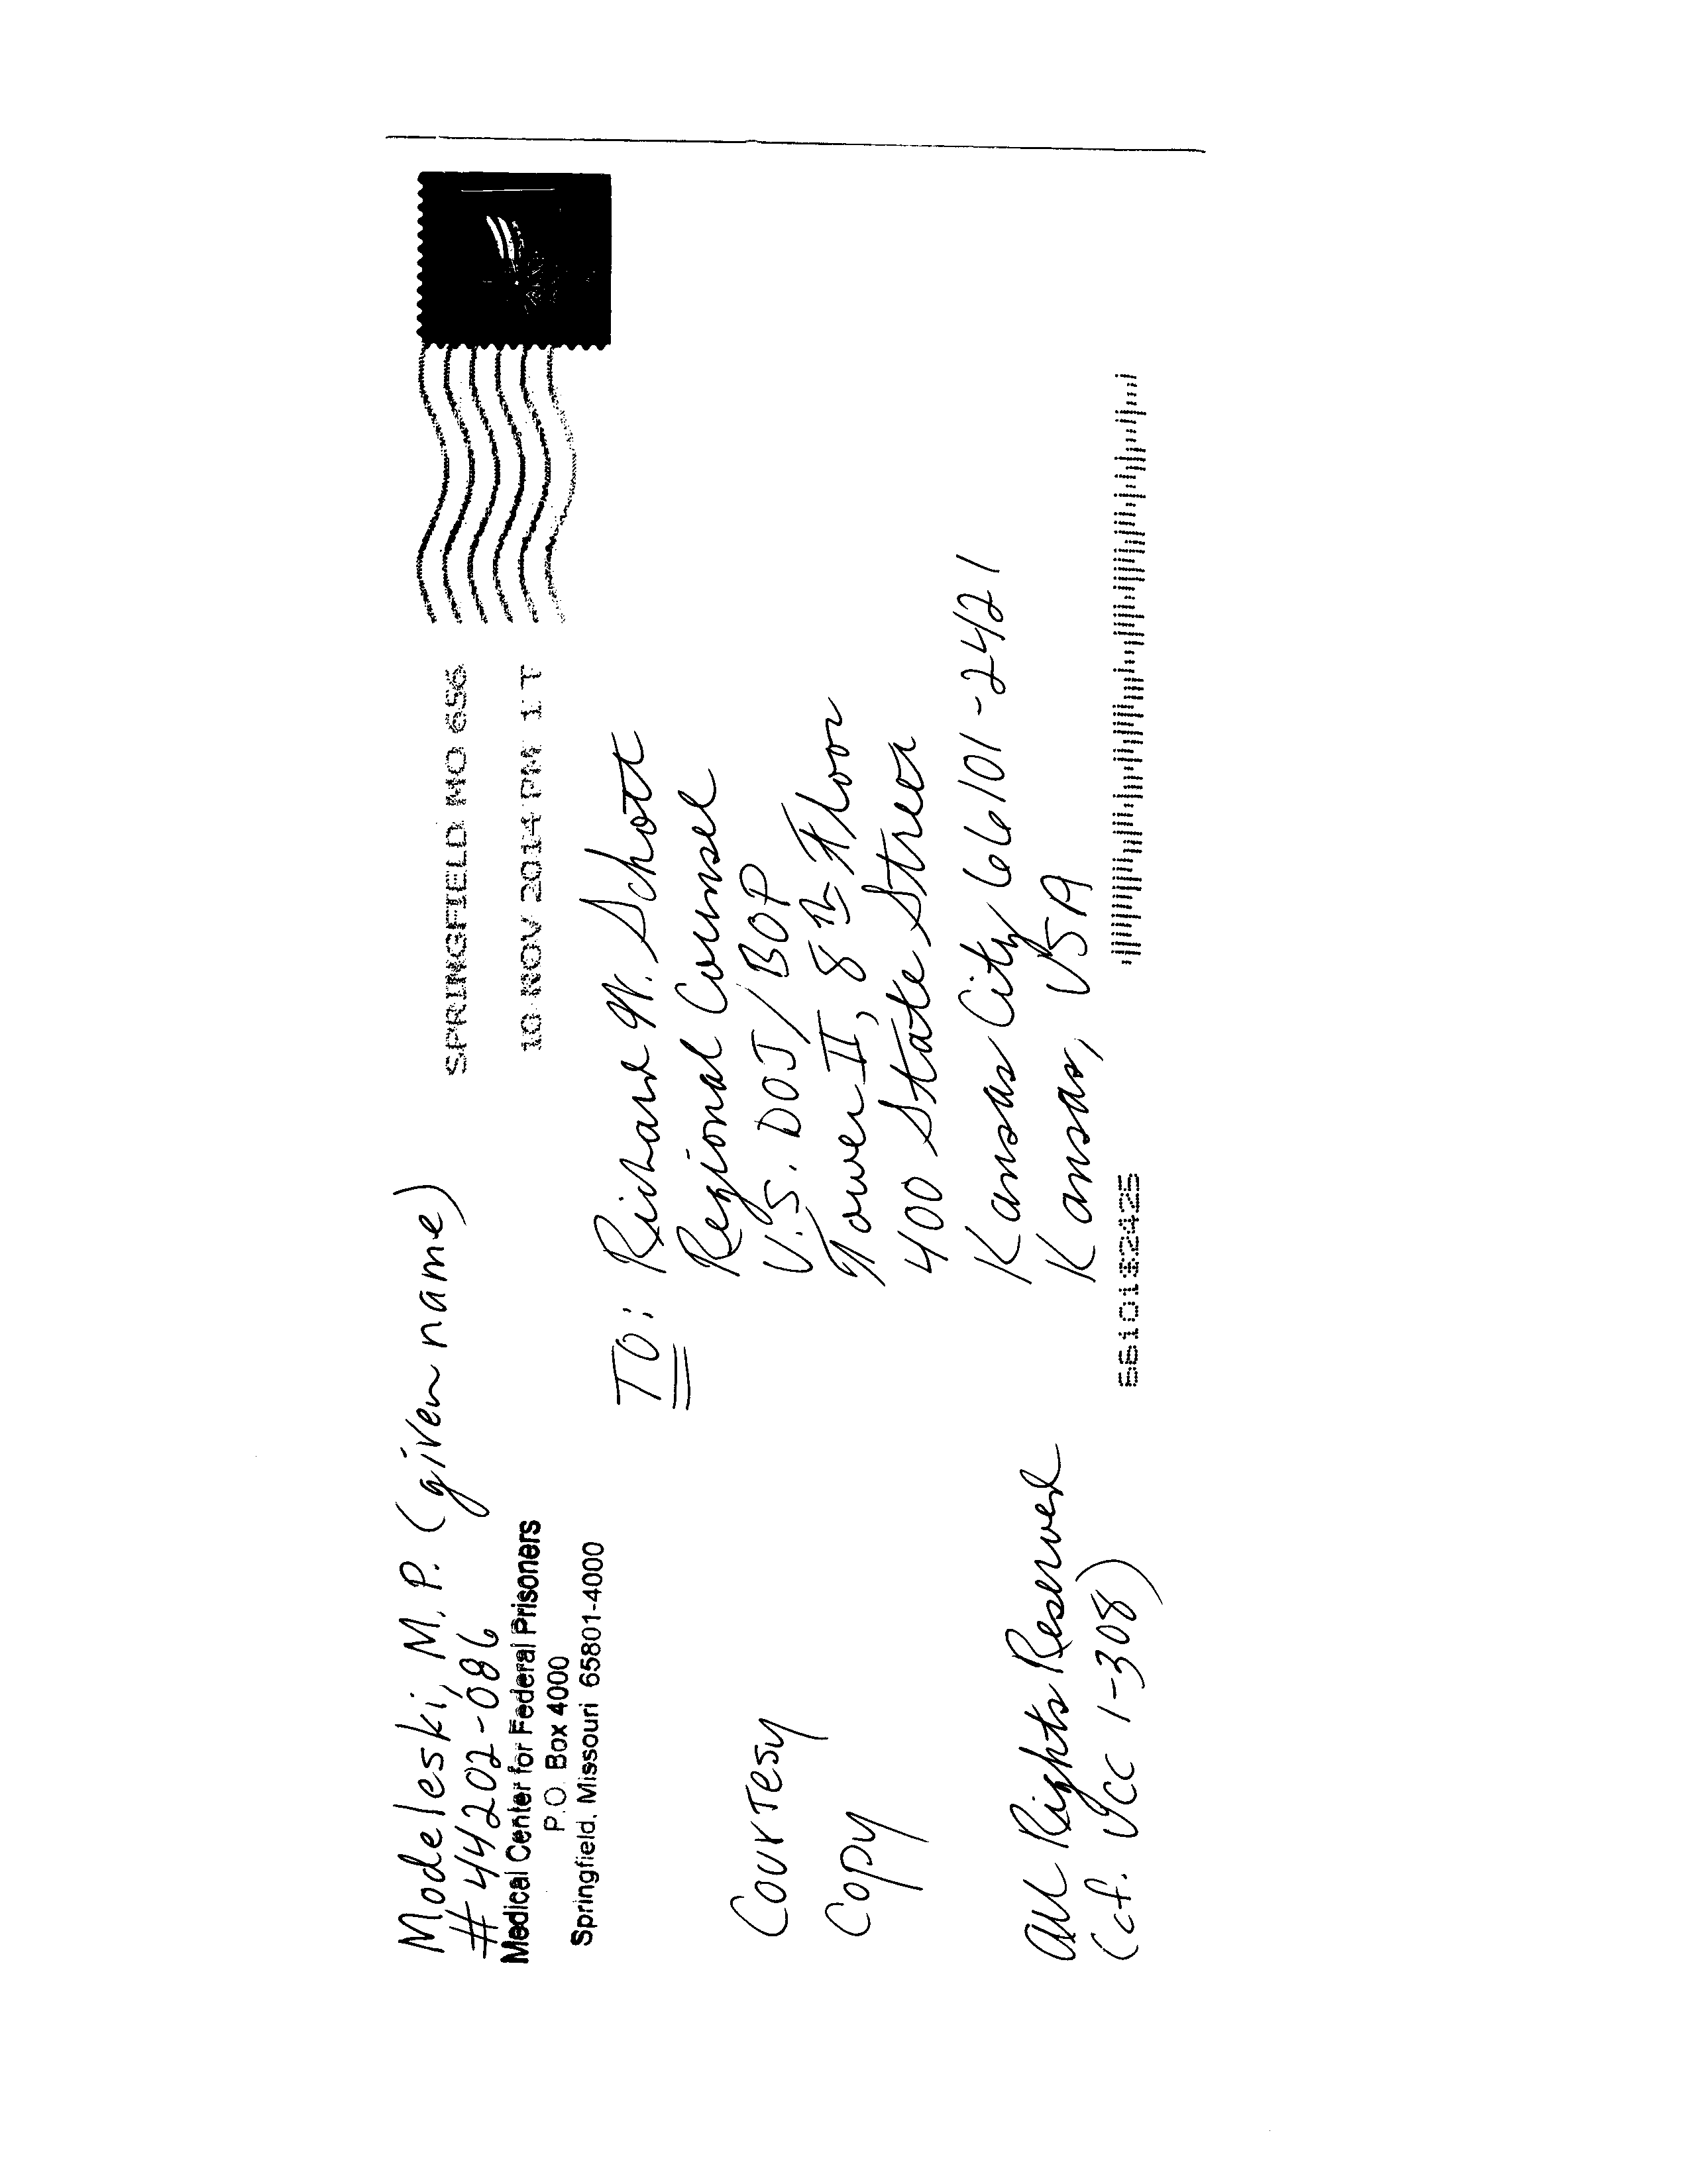 Modeleski, M.P. (given name)
# 44202-086
Medical Center for Federal Prisoners
P.O. Box 4000
Springfield, Missouri 65801-4000
SPRINGFIELD MO 656
10 NOV 2014 PM 1 T
TO: Richard W. Schott
Regional Counsel
U.S. DOJ/BOP
Tower II, 8th Floor
400 State Street
Kansas City 66101-2421
Kansas, USA
Courtesy
Copy
All Rights Reserved
(cf. UCC 1-308)
66101$2425